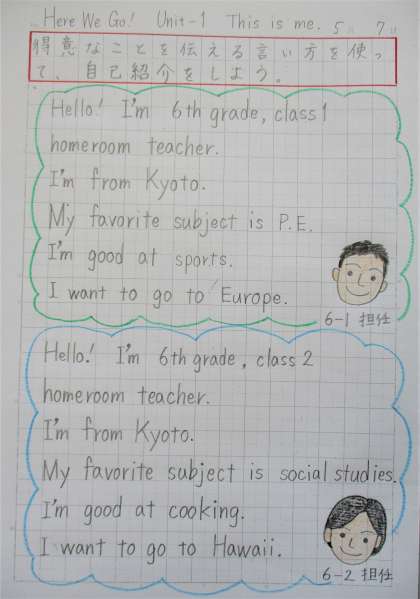 Here We Go! Unit-1 This is me. 5 7
得意なことを伝える言い方を使っ
て、自己紹介をしよう。
Hello! I'm 6th grade, class 1
homeroom teacher.
I'm from Kyoto.
My favorite subject is P.E.
I'm good at sports.
I want to go to Europe.
6-1 担任
Hello! I'm 6th grade, class 2
homeroom teacher.
I'm from Kyoto.
My favorite subject is social studies.
I'm good at cooking.
I want to go to Hawaii.
6-2 担任